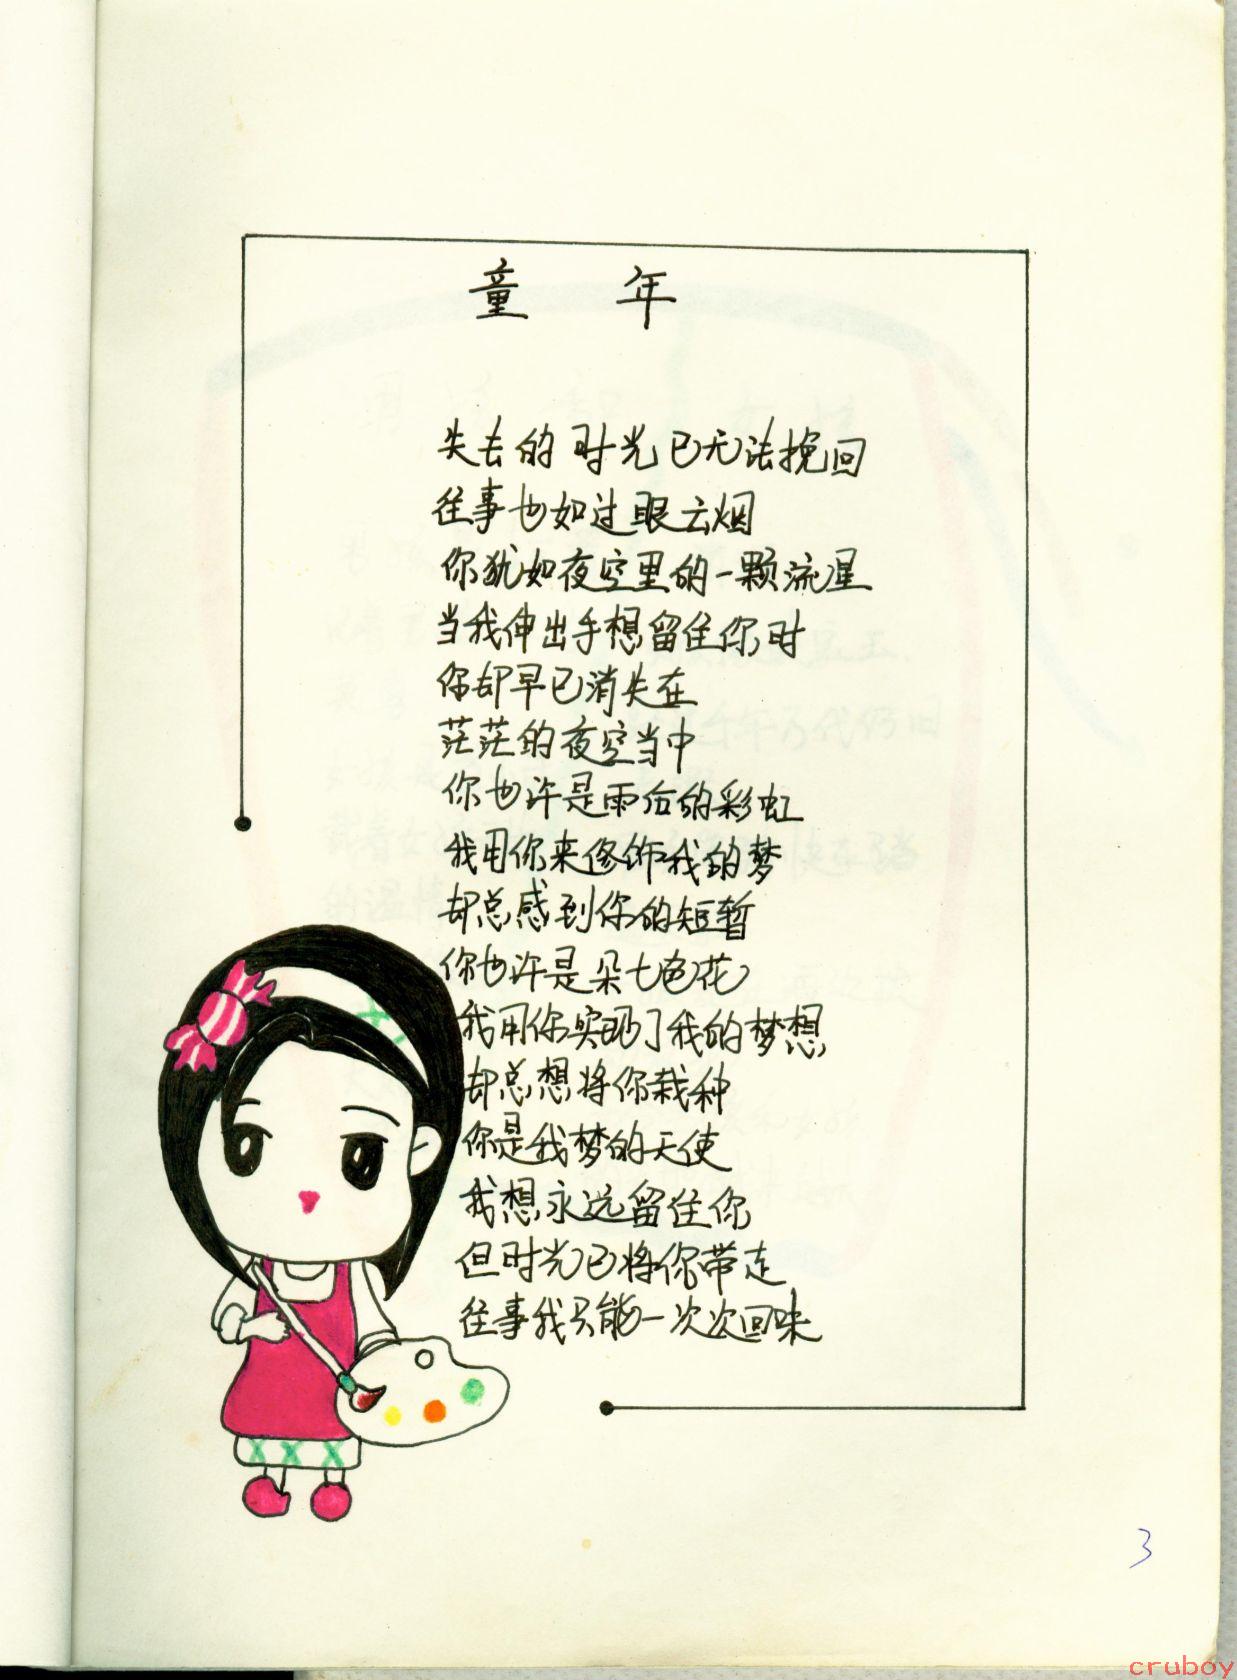 童年
失去的时光已无法挽回
往事也如过眼云烟
你犹如夜空里的一颗流星
当我伸出手想留住你时
你却早已消失在
茫茫的夜空当中
你也许是雨后的彩虹
我用你来修饰我的梦
却总感到你的短暂
你也许是朵七色花
我用你实现了我的梦想
却总想将你栽种
你是我梦的天使
我想永远留住你
但时光已将你带走
往事我只能一次次回味
3
cruboy